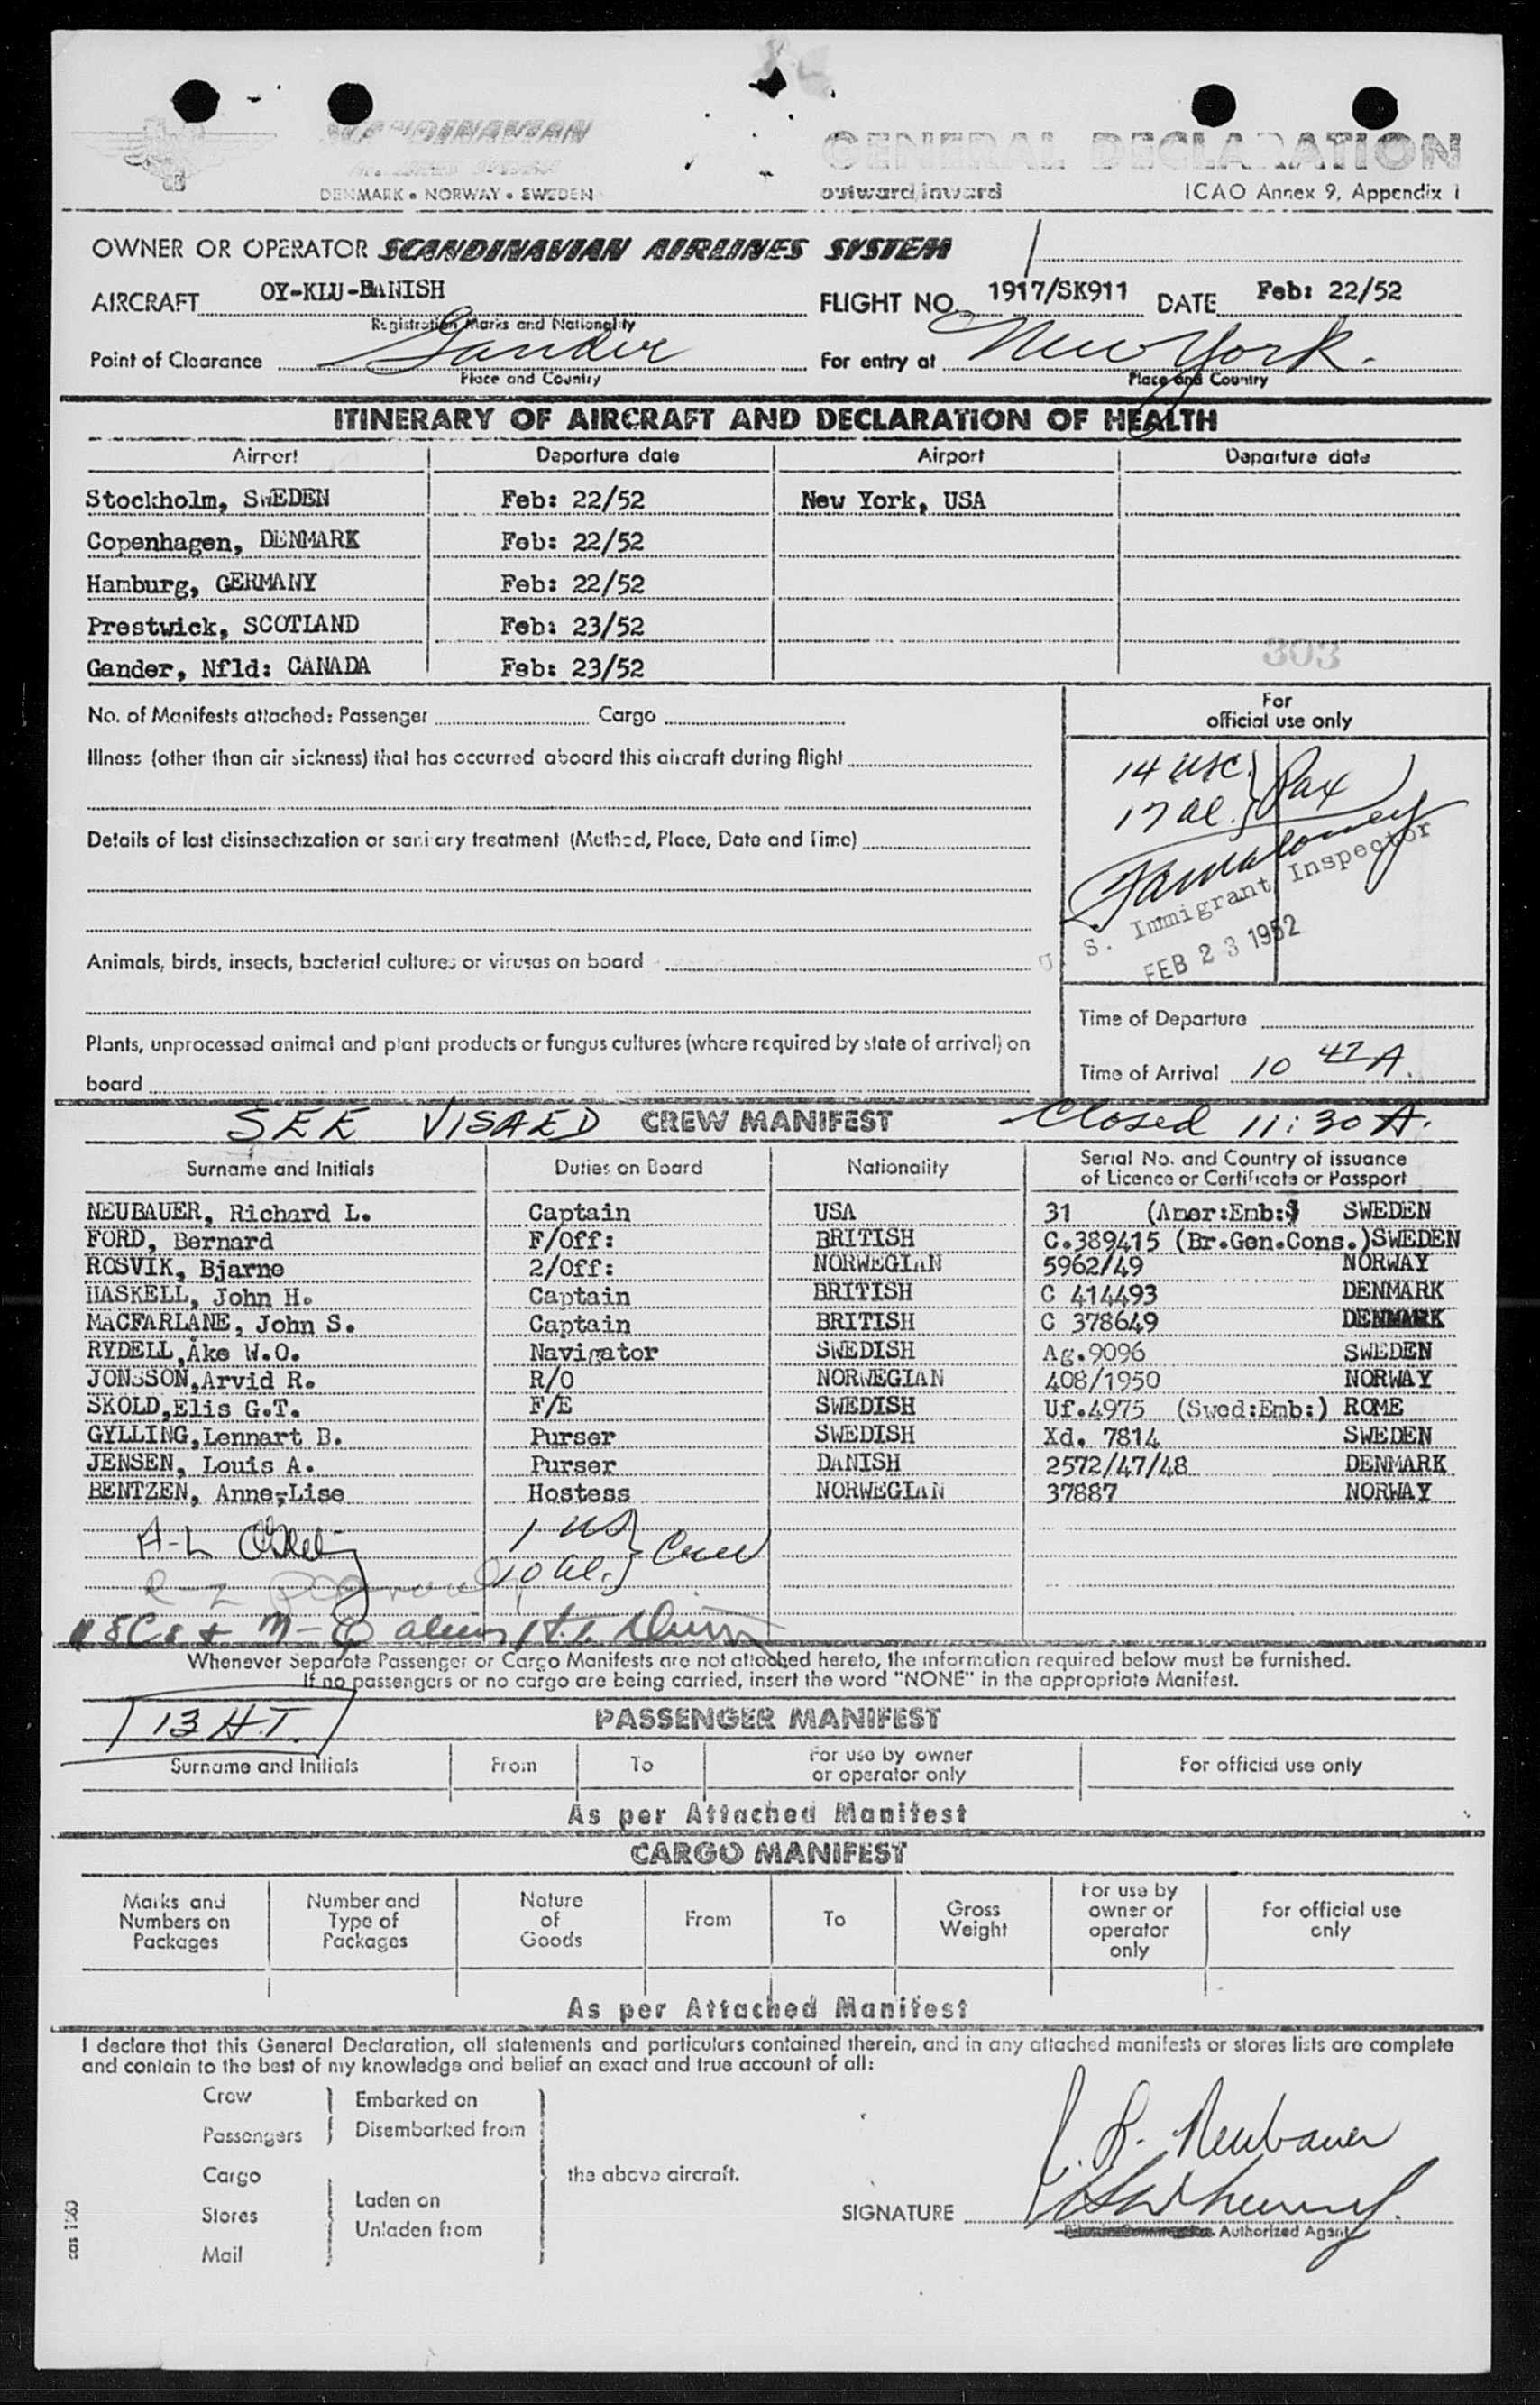 SCANDINAVIAN
DENMARK • NORWAY • SWEDEN
GENERAL DECLARATION
outward/inward
ICAO Annex 9, Appendix 1
OWNER OR OPERATOR SCANDINAVIAN AIRLINES SYSTEM
AIRCRAFT OY-KLU-DANISH FLIGHT NO. 1917/SK911 DATE Feb: 22/52
Registration Marks and Nationality
Point of Clearance Gander For entry at New York.
Place and Country Place and Country
ITINERARY OF AIRCRAFT AND DECLARATION OF HEALTH
Airport Departure date Airport Departure date
Stockholm, SWEDEN Feb: 22/52 New York, USA
Copenhagen, DENMARK Feb: 22/52
Hamburg, GERMANY Feb: 22/52
Prestwick, SCOTLAND Feb: 23/52
303
Gander, Nfld: CANADA Feb: 23/52
No. of Manifests attached: Passenger Cargo
For
official use only
Illness (other than air sickness) that has occurred aboard this aircraft during flight
14 USC. } Pax
17 al.
Details of last disinsectization or sanitary treatment (Method, Place, Date and Time)
U. S. Immigrant Inspector
FEB 23 1952
Animals, birds, insects, bacterial cultures or viruses on board
Time of Departure
Plants, unprocessed animal and plant products or fungus cultures (where required by state of arrival) on
board
Time of Arrival 10 47 A.
SEE VISAED CREW MANIFEST Closed 11:30 A.
Surname and Initials Duties on Board Nationality Serial No. and Country of issuance
of Licence or Certificate or Passport
NEUBAUER, Richard L. Captain USA 31 (Amer:Emb:) SWEDEN
FORD, Bernard F/Off: BRITISH C.389415 (Br.Gen.Cons.)SWEDEN
ROSVIK, Bjarne 2/Off: NORWEGIAN 5962/49 NORWAY
HASKELL, John H. Captain BRITISH C 414493 DENMARK
MACFARLANE, John S. Captain BRITISH C 378649 DENMARK
RYDELL,Åke W.O. Navigator SWEDISH Ag.9096 SWEDEN
JONSSON,Arvid R. R/O NORWEGIAN 408/1950 NORWAY
SKOLD,Elis G.T. F/E SWEDISH Uf.4975 (Swed:Emb:) ROME
GYLLING,Lennart B. Purser SWEDISH Xd. 7814 SWEDEN
JENSEN, Louis A. Purser DANISH 2572/47/48 DENMARK
BENTZEN, Anne-Lise Hostess NORWEGIAN 37887 NORWAY
A-L 1 US } Crew
10 al.
Whenever Separate Passenger or Cargo Manifests are not attached hereto, the information required below must be furnished.
If no passengers or no cargo are being carried, insert the word "NONE" in the appropriate Manifest.
13 H.T. PASSENGER MANIFEST
Surname and Initials From To For use by owner
or operator only For official use only
As per Attached Manifest
CARGO MANIFEST
Marks and
Numbers on
Packages
Number and
Type of
Packages
Nature
of
Goods
From
To
Gross
Weight
For use by
owner or
operator
only
For official use
only
As per Attached Manifest
I declare that this General Declaration, all statements and particulars contained therein, and in any attached manifests or stores lists are complete
and contain to the best of my knowledge and belief an exact and true account of all:
Crew Embarked on
Passengers Disembarked from
Cargo the above aircraft.
Stores Laden on
Unladen from
Mail
Neubauer
SIGNATURE
Authorized Agent